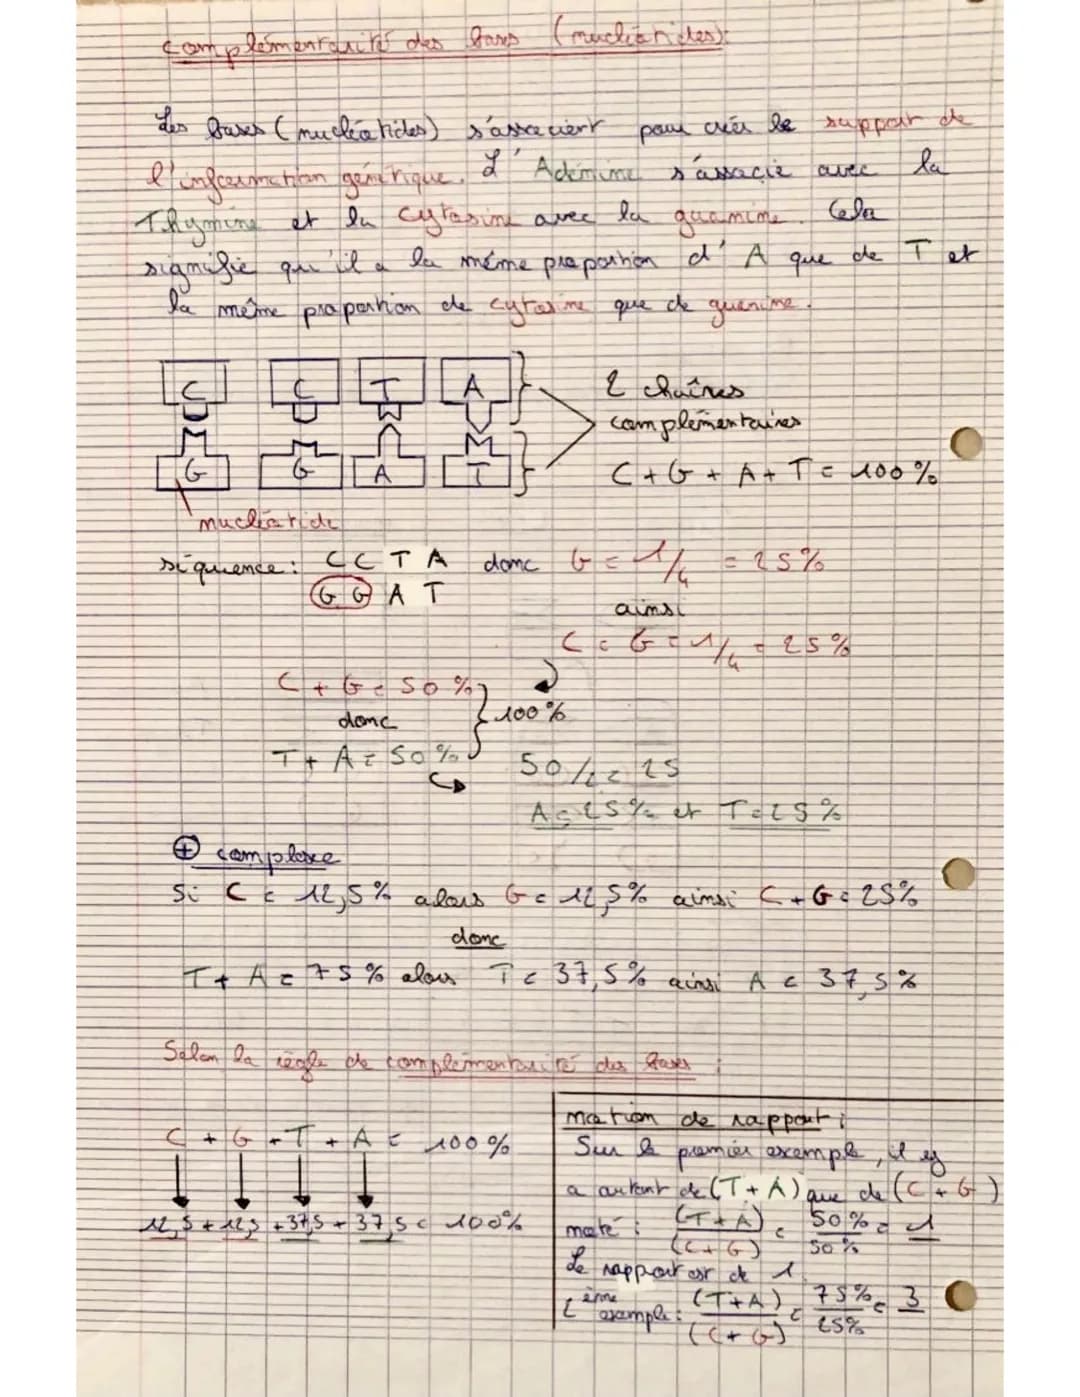 Complémentarité des bases (nucléotides):
Les bases (nucléotides) s'associent pour créer le support de
l'information génétique. L'Adénine s'associe avec la
Thymine et la cytosine avec la guanine. Cela
signifie qu'il a la même proportion d'A que de T et
la même proportion de cytosine que de guanine.
C C T A
G G A T
2 chaînes
complémentaires
C + G + A + T = 100 %
nucléotide
séquence : C C T A donc G = 1/4 = 25%
G G A T
ainsi
C = G = 1/4 = 25%
C + G = 50 %
donc
100 %
T + A = 50 %
50/2 = 25
A = 25% et T = 25%
⊕ complexe
Si C = 12,5% alors G = 12,5% ainsi C + G = 25%
donc
T + A = 75% alors T = 37,5% ainsi A = 37,5%
Selon la règle de complémentarité des bases :
C + G + T + A = 100 %
12,5 + 12,5 + 37,5 + 37,5 = 100%
notion de rapport :
Sur le premier exemple, il y
a autant de (T + A) que de (C + G)
noté : (T+A)/(C+G) = 50%/50% = 1
Le rapport est de 1
2ème exemple : (T+A)/(C+G) = 75%/25% = 3